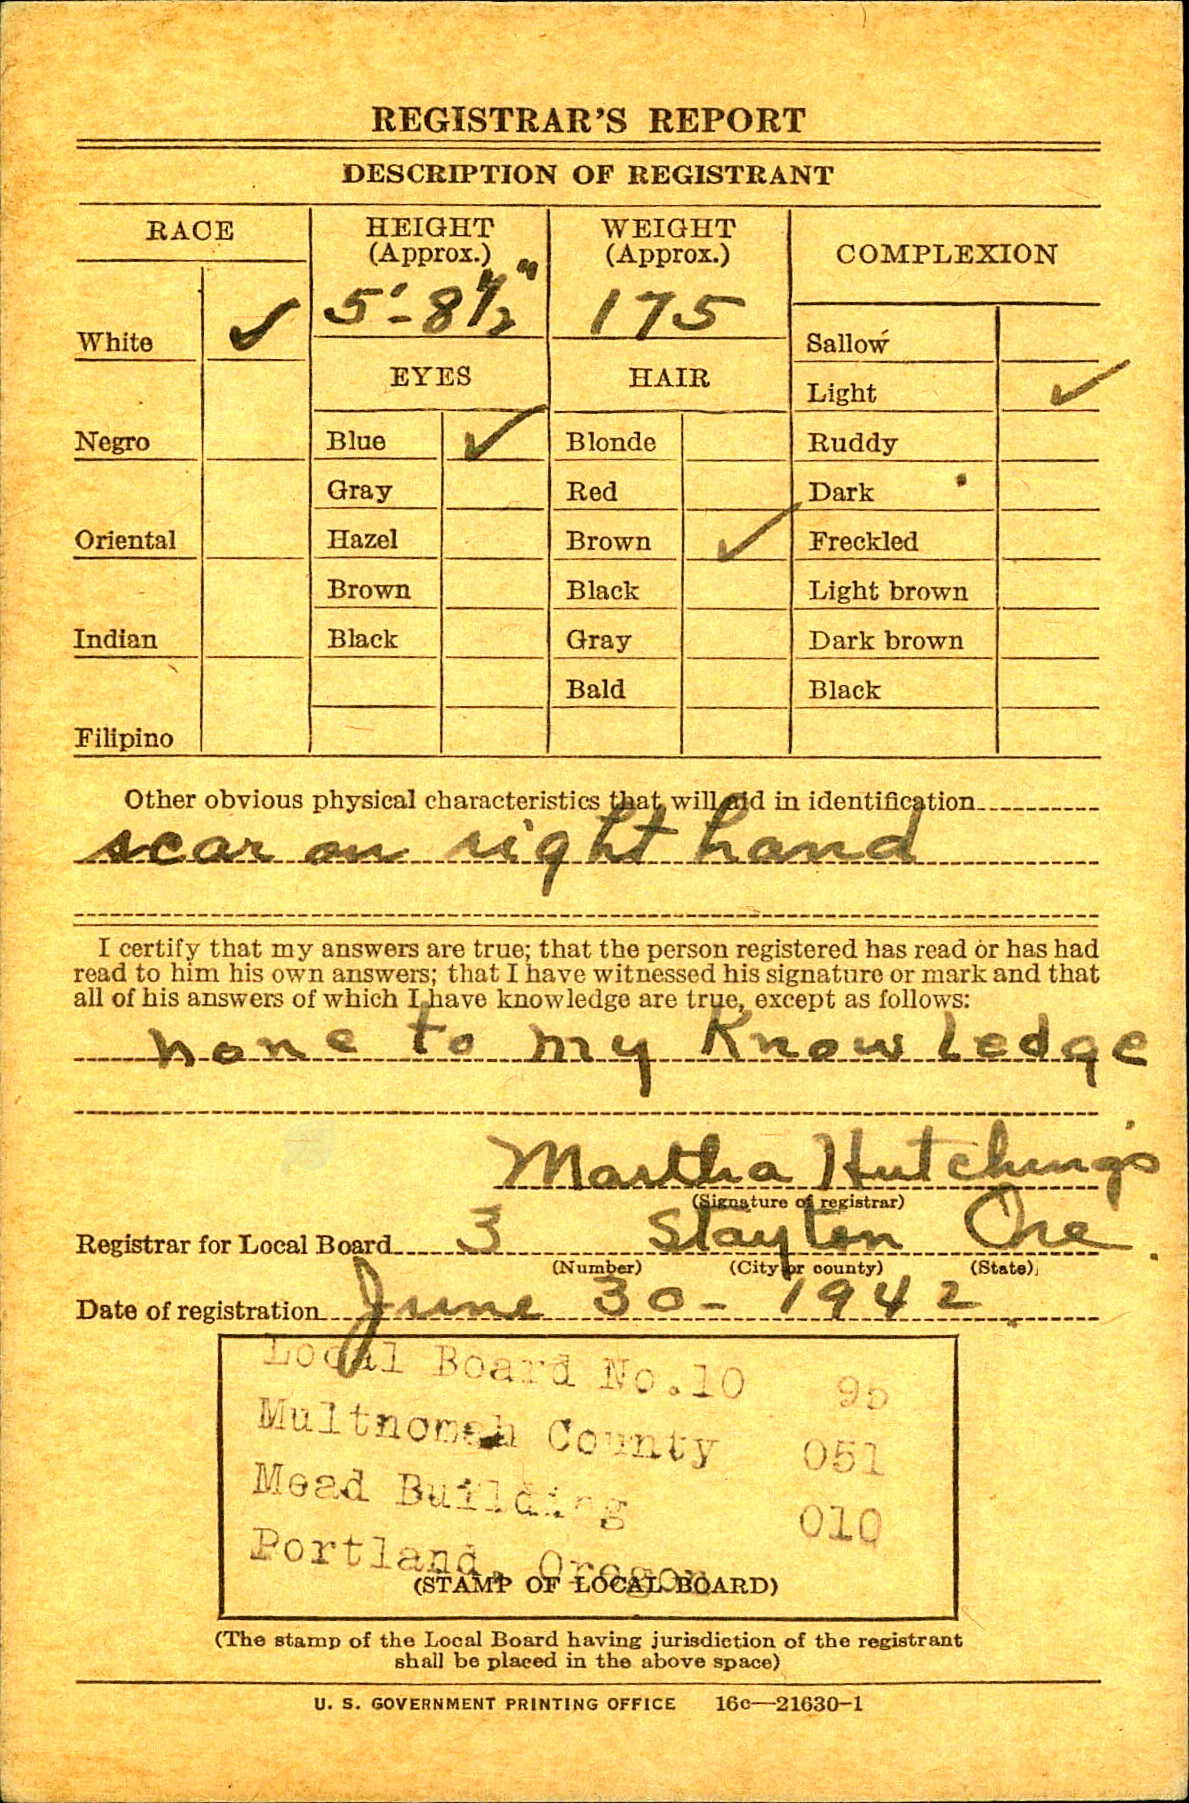 REGISTRAR'S REPORT
DESCRIPTION OF REGISTRANT
RACE
HEIGHT
(Approx.)
WEIGHT
(Approx.)
COMPLEXION
5'-8 1/2"
175
White ✓
Sallow
EYES
HAIR
Light ✓
Negro
Blue ✓
Blonde
Ruddy
Gray
Red
Dark
Oriental
Hazel
Brown ✓
Freckled
Brown
Black
Light brown
Indian
Black
Gray
Dark brown
Bald
Black
Filipino
Other obvious physical characteristics that will aid in identification
scar on right hand
I certify that my answers are true; that the person registered has read or has had
read to him his own answers; that I have witnessed his signature or mark and that
all of his answers of which I have knowledge are true, except as follows:
none to my Knowledge
Martha Hutchings
(Signature of registrar)
Registrar for Local Board 3 Stayton Ore.
(Number) (City or county) (State)
Date of registration June 30 - 1942
Local Board No.10 95
Multnomah County 051
Mead Building 010
Portland, Oregon
(STAMP OF LOCAL BOARD)
(The stamp of the Local Board having jurisdiction of the registrant
shall be placed in the above space)
U. S. GOVERNMENT PRINTING OFFICE 16c—21630-1